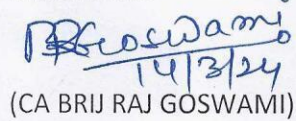 BRGoswami
14/3/24
(CA BRIJ RAJ GOSWAMI)